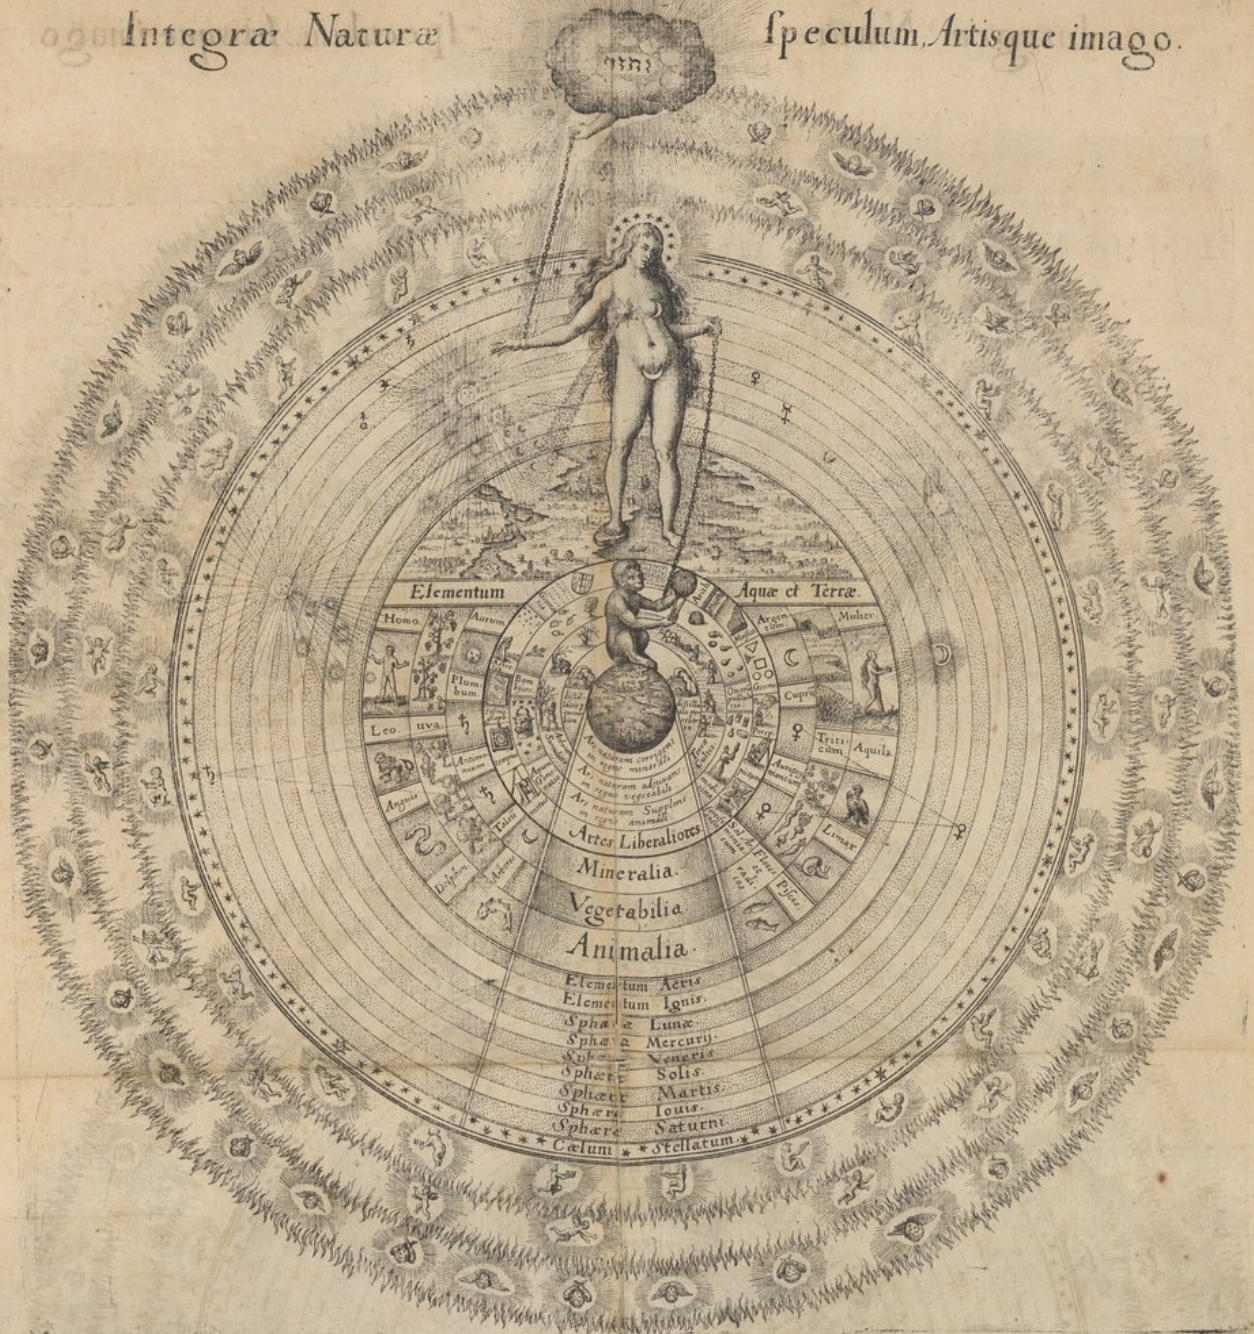 Integræ Naturæ speculum, Artisque imago.
יהוה
Elementum Aquæ et Terræ.
Homo.
Aurum
Argen tum.
Mulier
Plum bum
Cupru
Leo
uva
Triti cum
Aquila
Antimo nium
Auripig mentum
Anguis
Limax
Delphin
Arbores
Flores et radi ces
Pisces
Ars naturam corrigens
in regno minerali
Ars naturam adjuvans
in regno vegetabili
Ars naturam Supplens
in regno animali
Artes Liberaliores
Mineralia.
Vegetabilia
Animalia.
Elementum Aeris
Elementum Ignis.
Sphæra Lunæ
Sphæra Mercurij.
Sphæra Veneris
Sphæra Solis.
Sphæra Martis.
Sphæra Iouis.
Sphæra Saturni
Cælum Stellatum